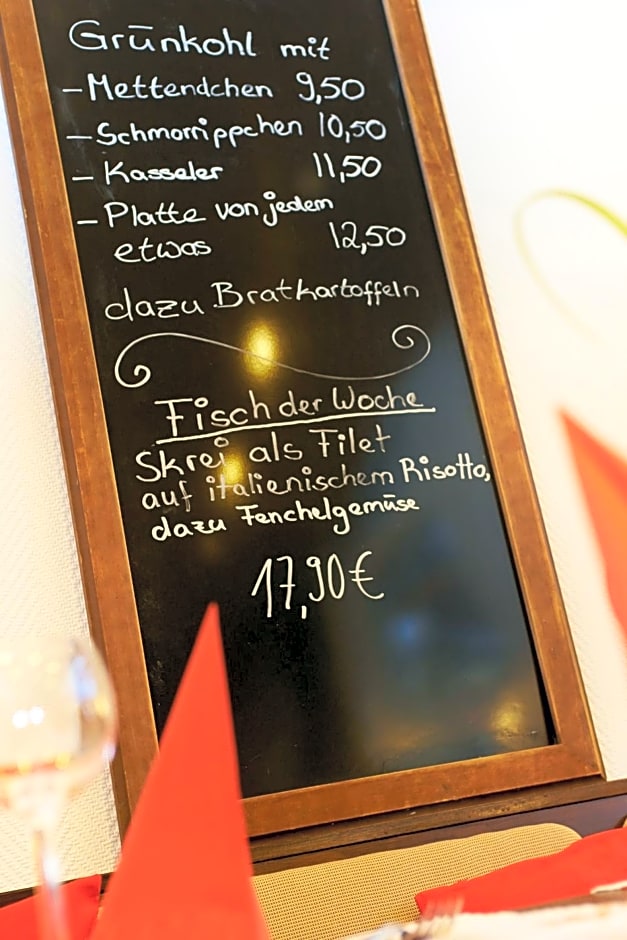 Grünkohl mit
- Mettendchen 9,50
- Schmorrippchen 10,50
- Kasseler 11,50
- Platte von jedem
etwas 12,50
dazu Bratkartoffeln
Fisch der Woche
Skrei als Filet
auf italienischem Risotto,
dazu Fenchelgemüse
17,90€